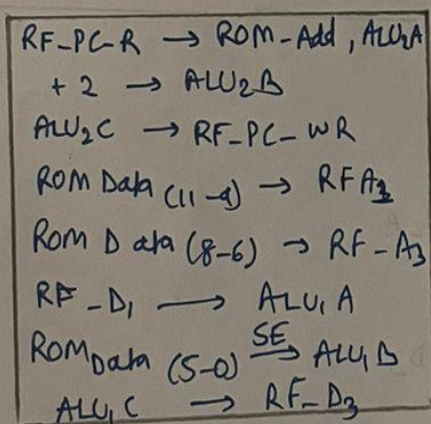 RF-PC-R → ROM-Add, ALU2A
+2 → ALU2B
ALU2C → RF-PC-WR
ROM Data (11-9) → RFA3
ROM Data (8-6) → RF-A3
RF-D1 → ALU1A
ROM Data (5-0) SE→ ALU1B
ALU1C → RF-D3